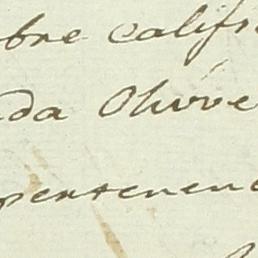 bre califi
da Olivve
pertenenc